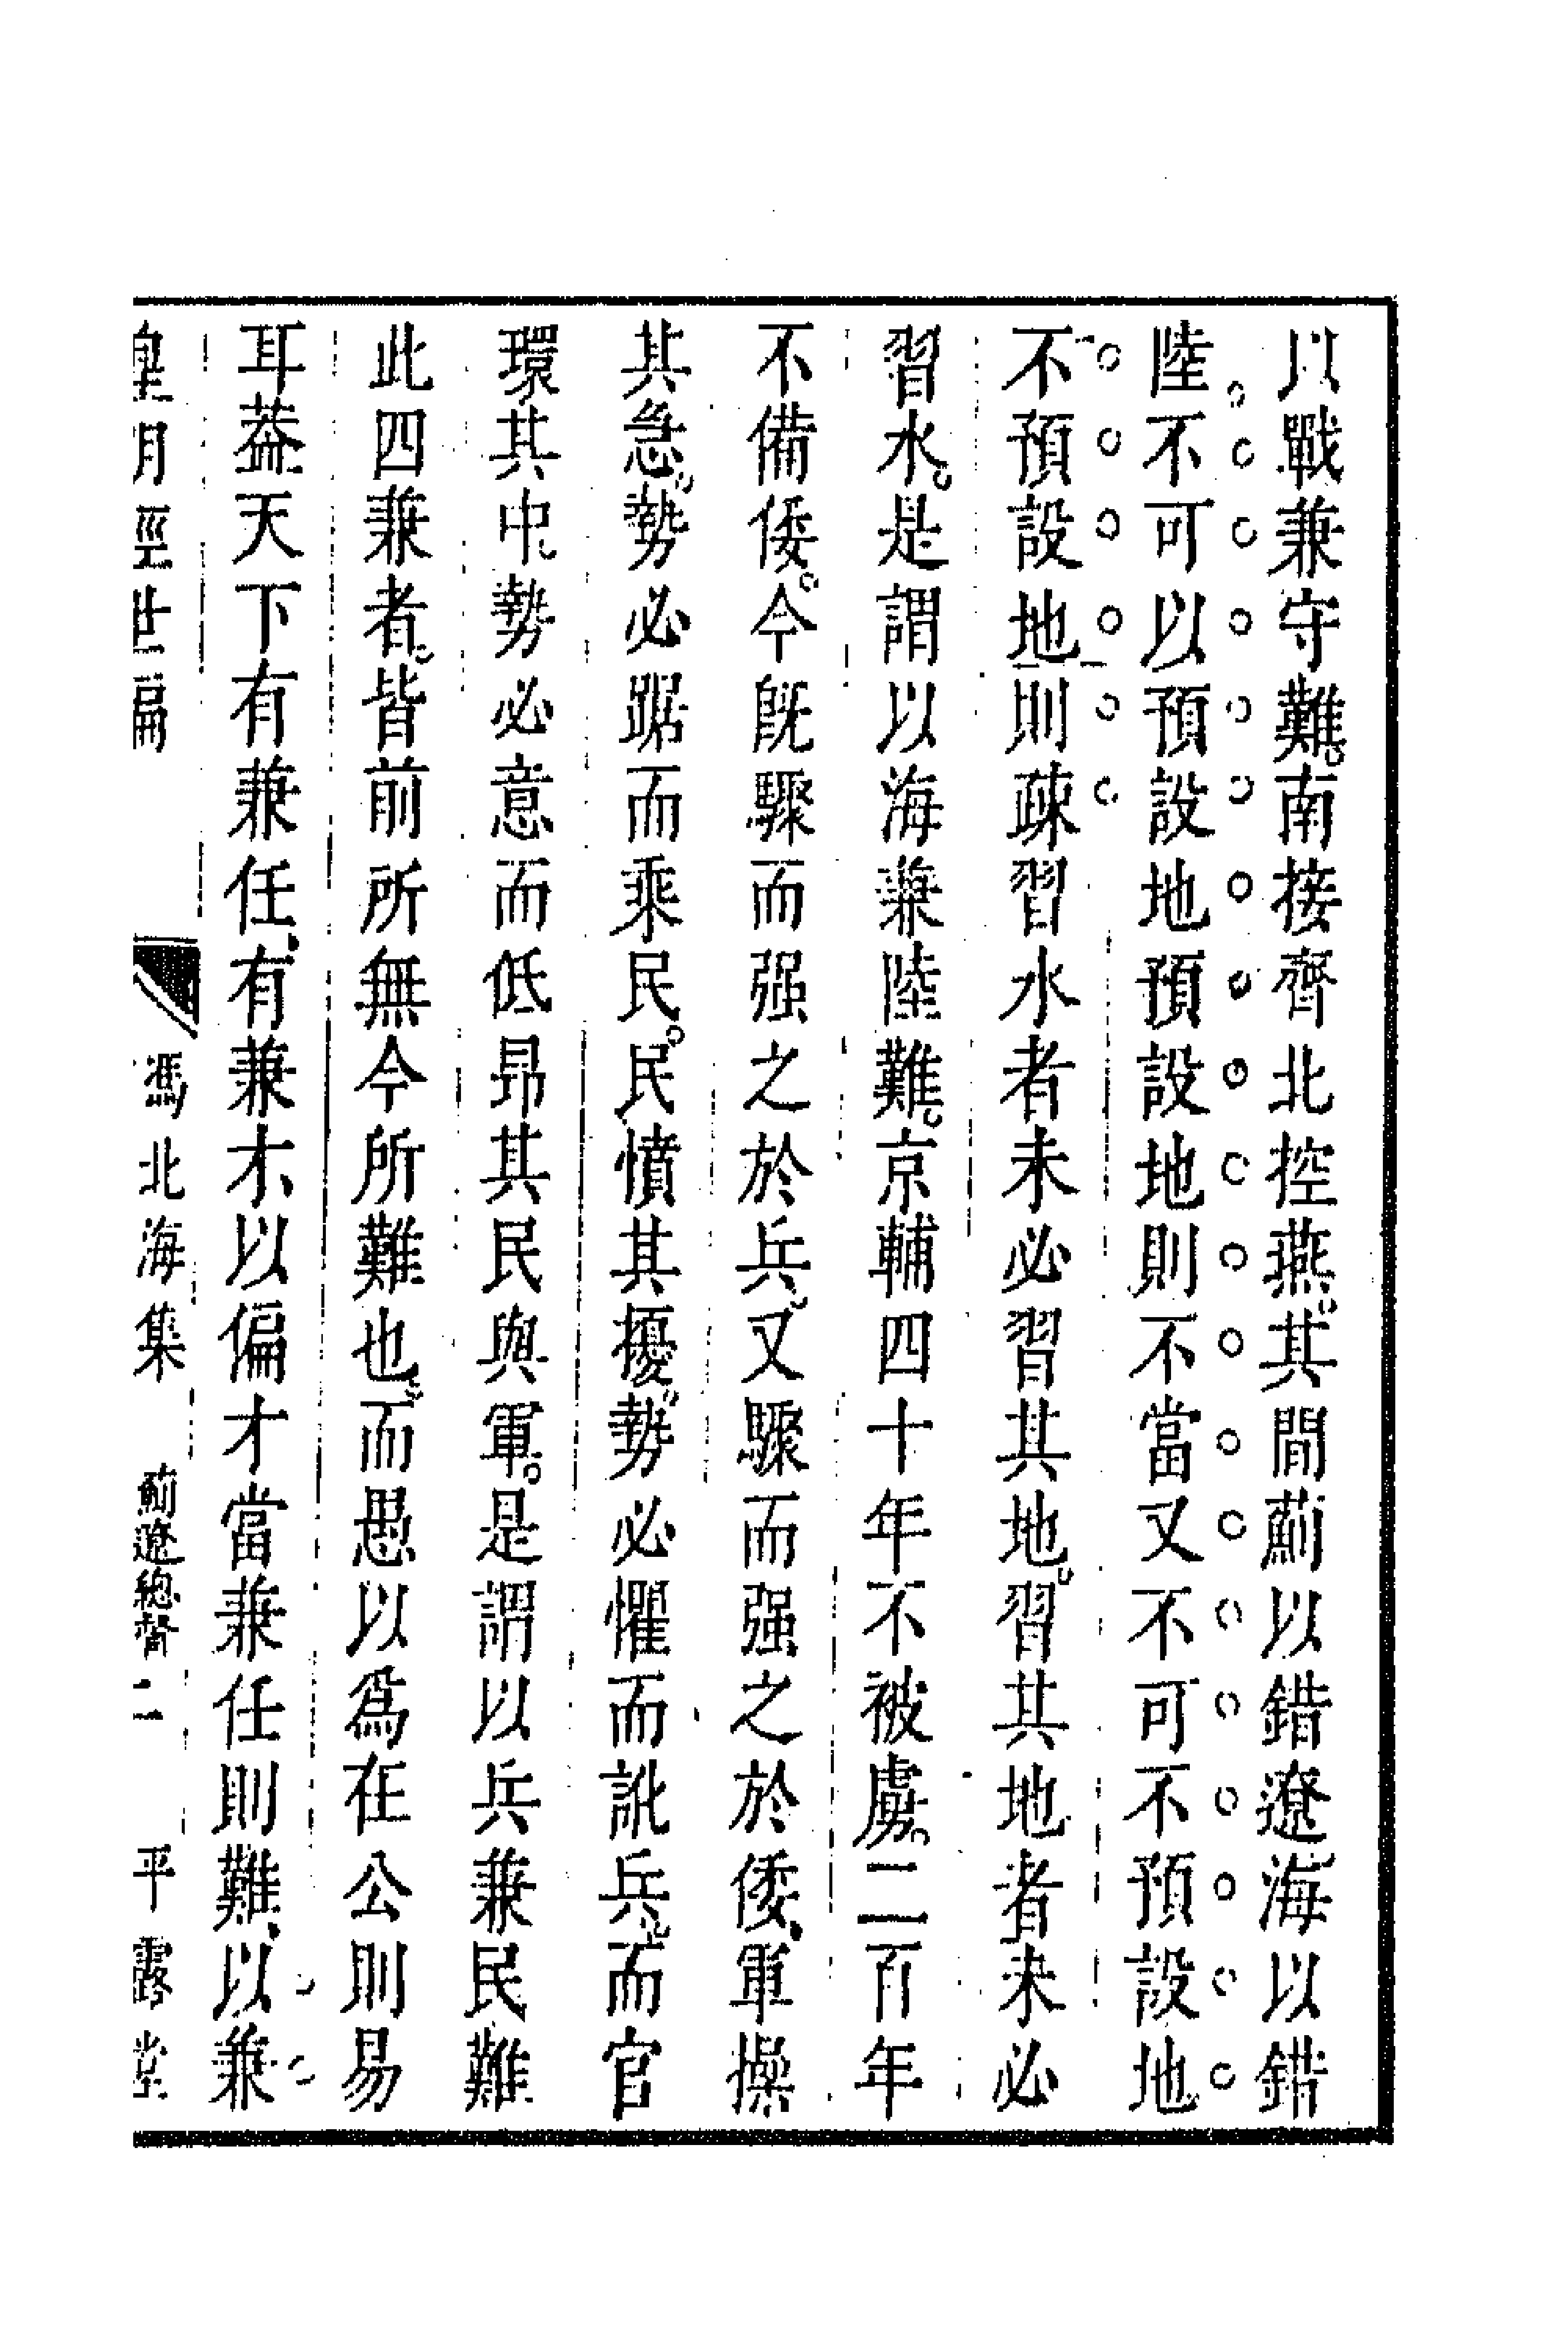 以戰兼守難。南接齊北控燕。其間薊以錯遼。海以錯
陸不可以預設地預設地則不當又不可不預設地
不預設地則疎習水者未必習其地。習其地者未必
習水。是謂以海兼陸難。京輔四十年不被虜。二百年
不備倭。今旣驟而强之於兵。又驟而强之於倭、軍操
其急。勢必踞而乘民。民憤其擾。勢必懼而訛兵。而官
環其中。勢必意而低昻其民與軍。是謂以兵兼民難
此四兼者。皆前所無今所難也。而愚以爲在公則易
耳葢天下有兼任、有兼才以偏才當兼任則難、以兼
皇明經世編 馮北海集 薊遼總督 二 平露堂